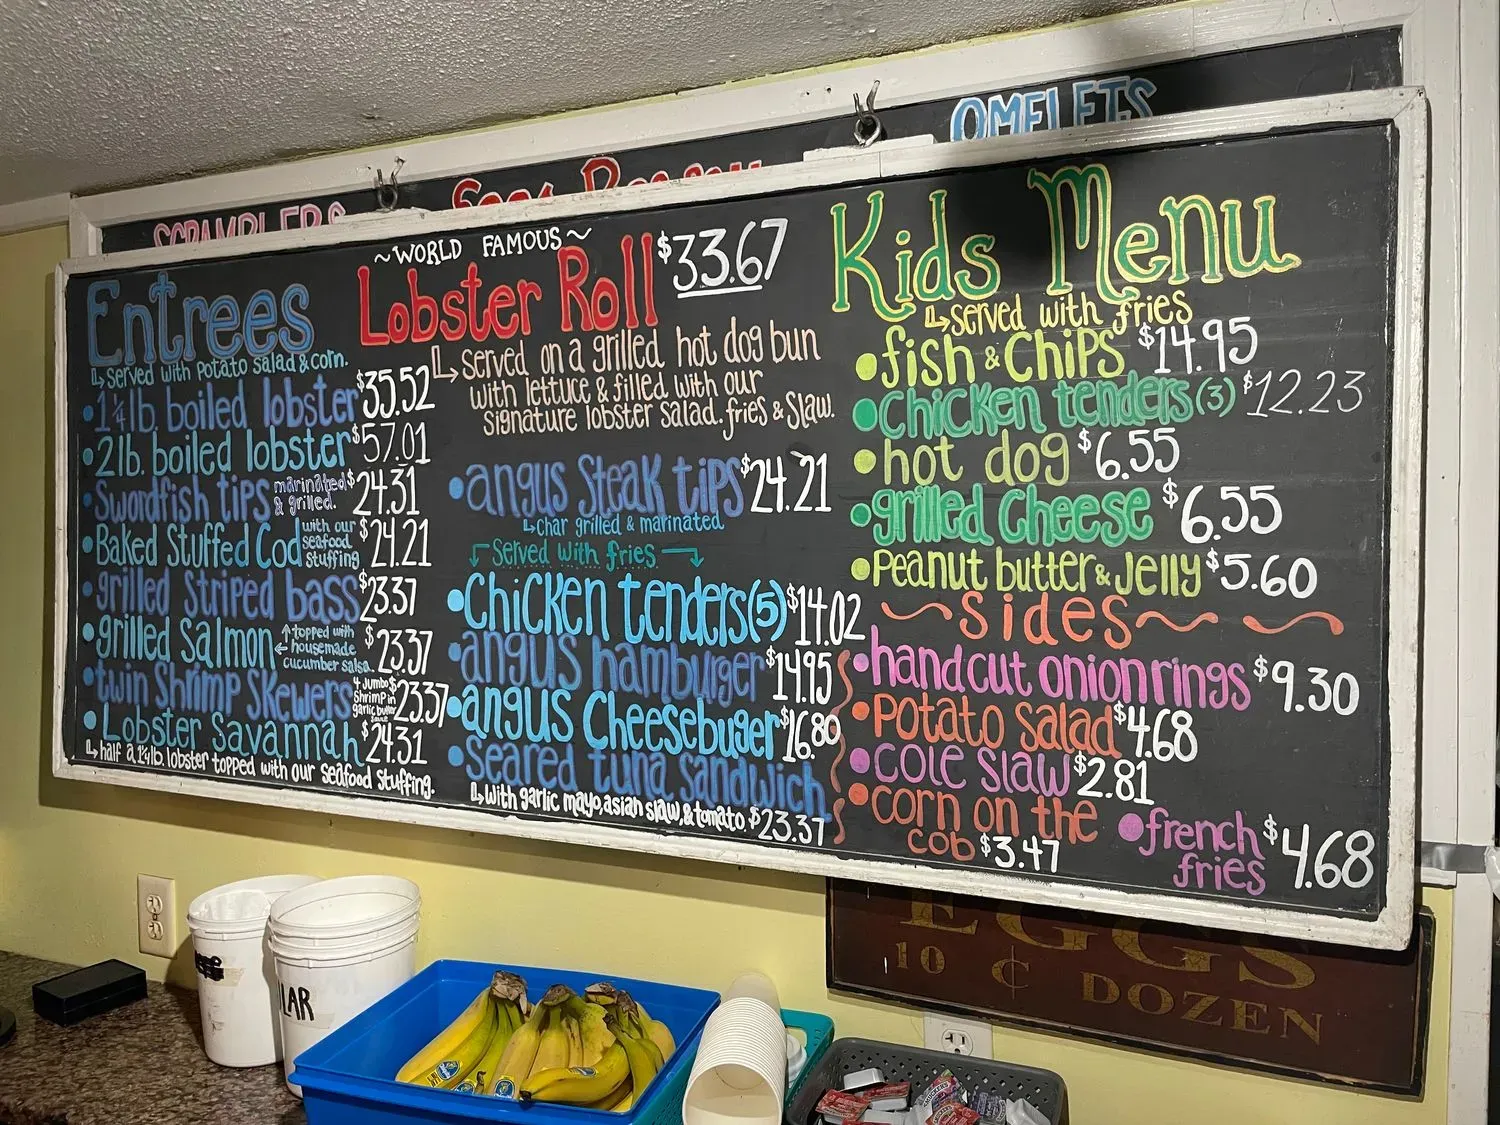 OMELETS
SCRAMBLERS
Entrees
↳served with potato salad & corn.
•1¼ lb. boiled lobster $35.52
•2lb. boiled lobster $57.01
•Swordfish tips marinated & grilled. $24.31
•Baked Stuffed Cod with our seafood stuffing $24.21
•grilled Striped bass $23.37
•grilled Salmon ↑topped with ←housemade cucumber salsa. $23.37
•twin Shrimp Skewers 4 Jumbo Shrimp in garlic butter sauce $23.37
•Lobster Savannah $24.31
↳half a 1¼lb. lobster topped with our seafood stuffing.
~WORLD FAMOUS~
Lobster Roll $33.67
↳served on a grilled hot dog bun
with lettuce & filled with our
signature lobster salad. fries & Slaw.
•angus Steak tips $24.21
↳char grilled & marinated
Served with fries
•Chicken tenders(5) $14.02
•angus hamburger $14.95
•angus Cheesebuger $16.80
•Seared tuna sandwich
↳with garlic mayo, asian slaw, & tomato. $23.37
Kids Menu
↳served with fries
•fish & Chips $14.95
•Chicken tenders(3) $12.23
•hot dog $6.55
•grilled Cheese $6.55
•Peanut butter & Jelly $5.60
~Sides~
•handcut onion rings $9.30
•Potato Salad $4.68
•Cole Slaw $2.81
•corn on the
cob $3.47
•french
fries $4.68
EGGS
10 ¢ DOZEN
LAR